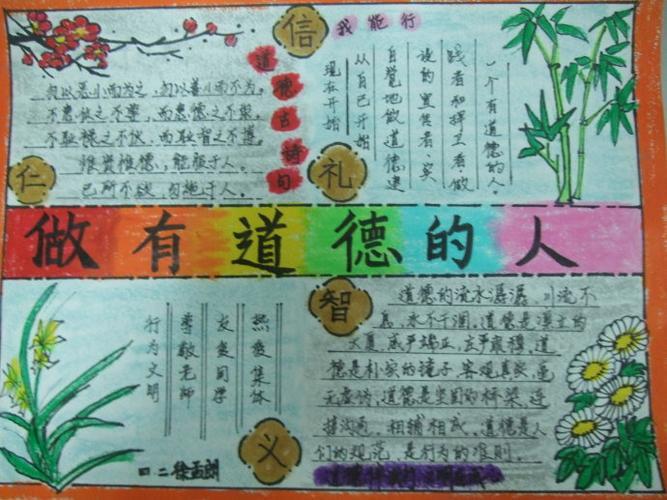 信
我能行
道德古诗句
勿以恶小而为之，勿以善小而不为。
不患位之不尊，而患德之不崇。
不耻禄之不伙，而耻智之不博。
惟贤惟德，能服于人。
己所不欲，勿施于人。
仁
礼
一个有道德的人。
践者和捍卫者，做
设的宣传者、实
自觉地做道德建
从自己开始
现在开始
做有道德的人
热爱集体
友爱同学
尊敬老师
行为文明
义
四二徐孟朗
智
道德的流水潺潺，川流不
息，永不干涸。道德是
大厦，威严端正，庄严肃穆。道
德是朴实的镜子，客观真实，毫
无虚伪。道德是坚固的桥梁，连
接沟通，相辅相成。道德是人
们的规范，是行为的准则。